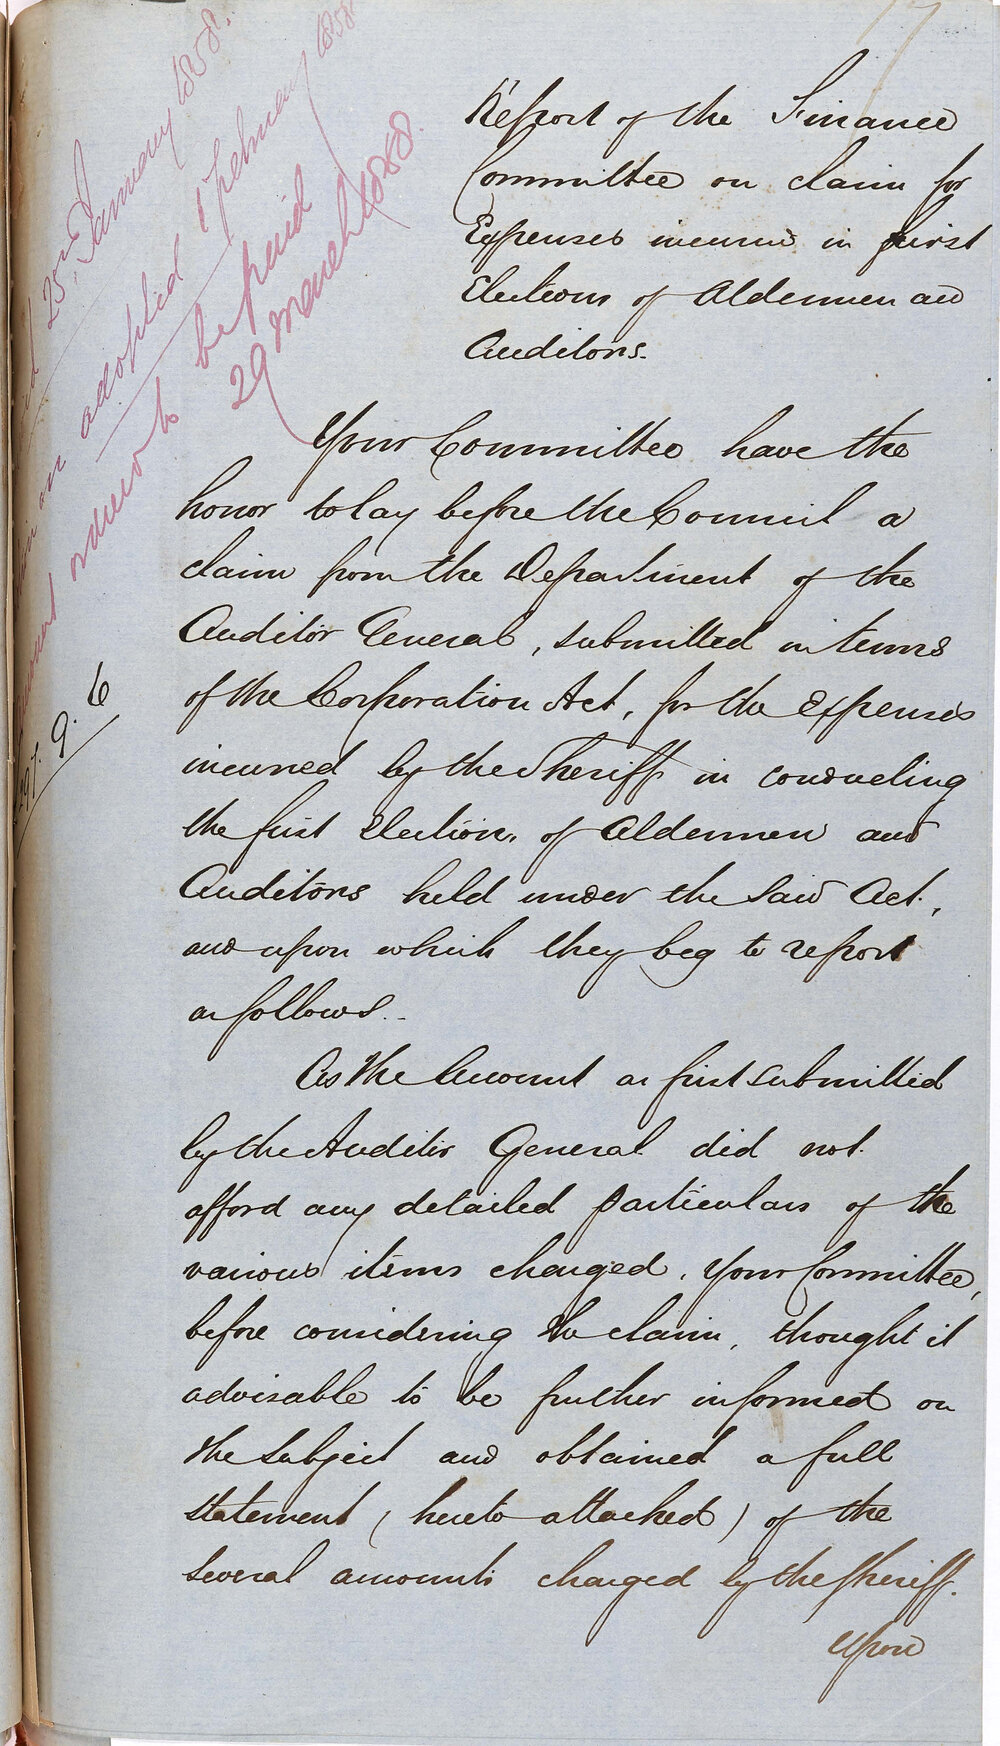 17
Report of the Finance
Committee on claim for
Expenses incurred in first
Elections of Aldermen and
Auditors.
25th January 1858.
adopted 1 February 1858
ordered to be paid
29 March 1858.
9. 6
Your Committee have the
honor to lay before the Council a
claim from the Department of the
Auditor General, submitted in terms
of the Corporation Act, for the expenses
incurred by the Sheriff in conducting
the first Elections of Aldermen and
Auditors held under the said Act,
and upon which they beg to report
as follows.
As the Account as first submitted
by the Auditor General did not
afford any detailed particulars of the
various items charged, Your Committee,
before considering the claim, thought it
advisable to be further informed on
the subject and obtained a full
statement (hereto attached) of the
several amounts charged by the Sheriff.
Upon